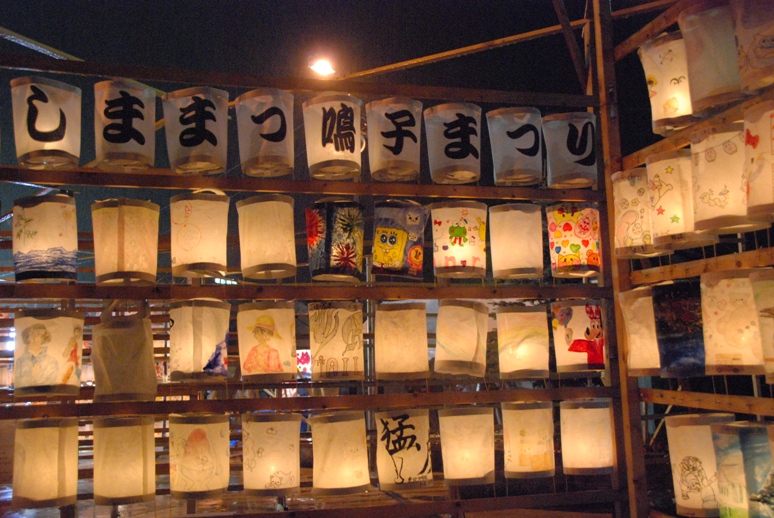 しままつ鳴子まつり
猛